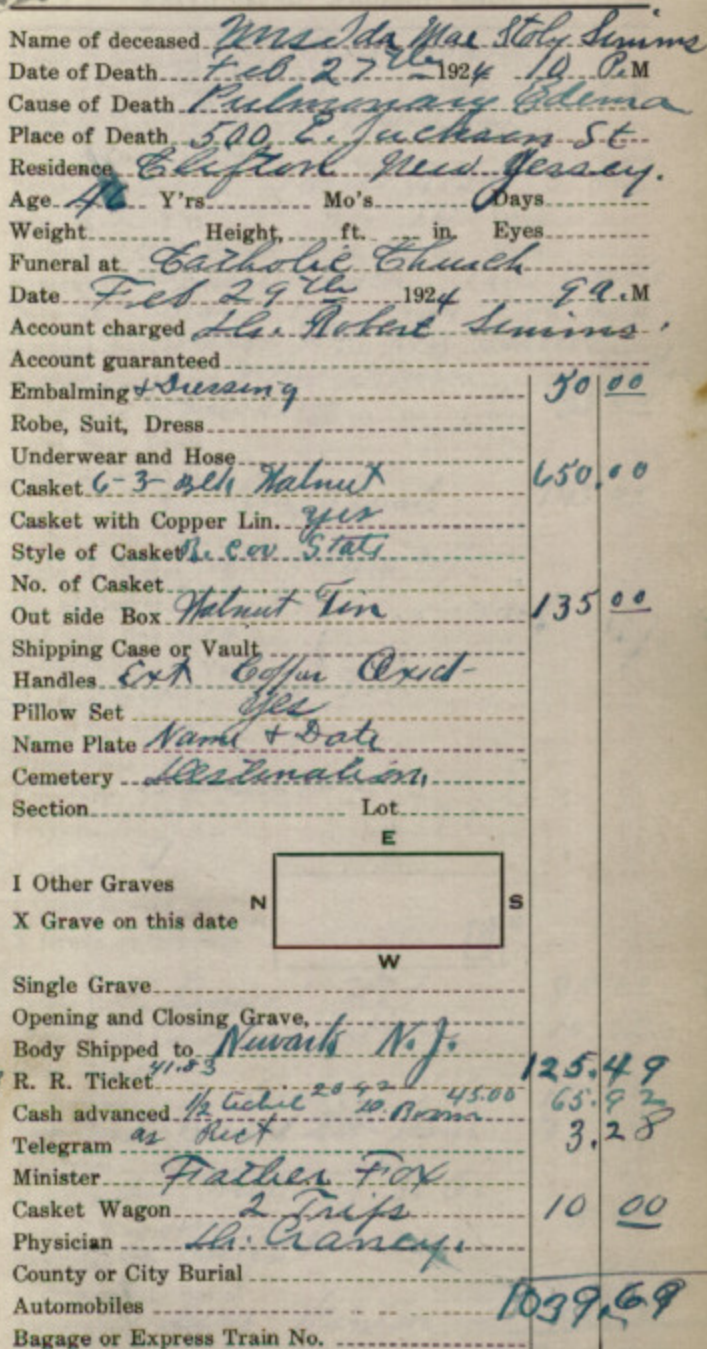 Name of deceased Mrs Ida Mae Stoly Simms
Date of Death Feb 27th 1924 10 P.M
Cause of Death Pulmonary Edema
Place of Death 500 E. Jackson St
Residence Clifton New Jersey.
Age Y'rs Mo's Days
Weight Height, ft. in. Eyes
Funeral at Catholic Church
Date Feb 29th 1924 9 a.M
Account charged Robert Simms
Account guaranteed
Embalming & Dressing 50 00
Robe, Suit, Dress
Underwear and Hose
Casket 6-3- Walnut 650.00
Casket with Copper Lin. yes
Style of Casket Cov Stats
No. of Casket
Out side Box Walnut Fin 135 00
Shipping Case or Vault
Handles Ext Coffer Oxid-
Pillow Set Yes
Name Plate Name + Date
Cemetery Destination,
Section Lot
E
I Other Graves
N S
X Grave on this date
W
Single Grave
Opening and Closing Grave,
Body Shipped to Newark N.J.
R. R. Ticket 41.83 125.49
Cash advanced 1/2 ticket 20 92 Room 45.00 65.92
Telegram as Rect 3.28
Minister Father Fox
Casket Wagon 2 Trips 10 00
Physician
County or City Burial
Automobiles 1039.69
Bagage or Express Train No.